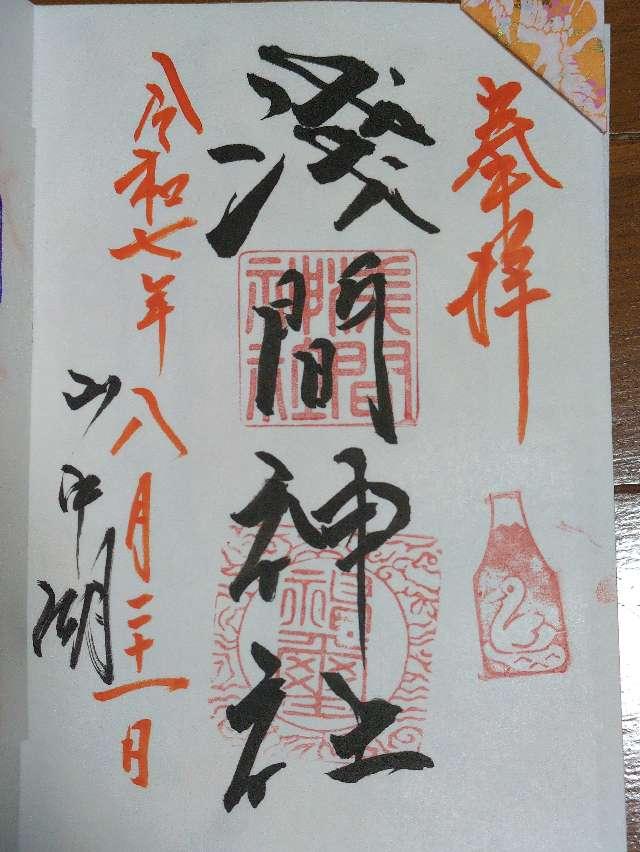 奉拝
淺間神社
令和七年八月二十一日
山中湖